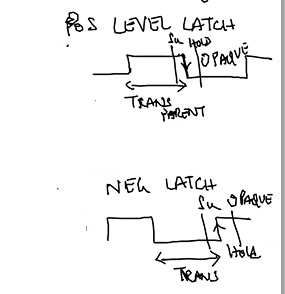 POS LEVEL LATCH
Su HOLD
OPAQUE
TRANS
PARENT
NEG LATCH
Su OPAQUE
HOLD
TRANS